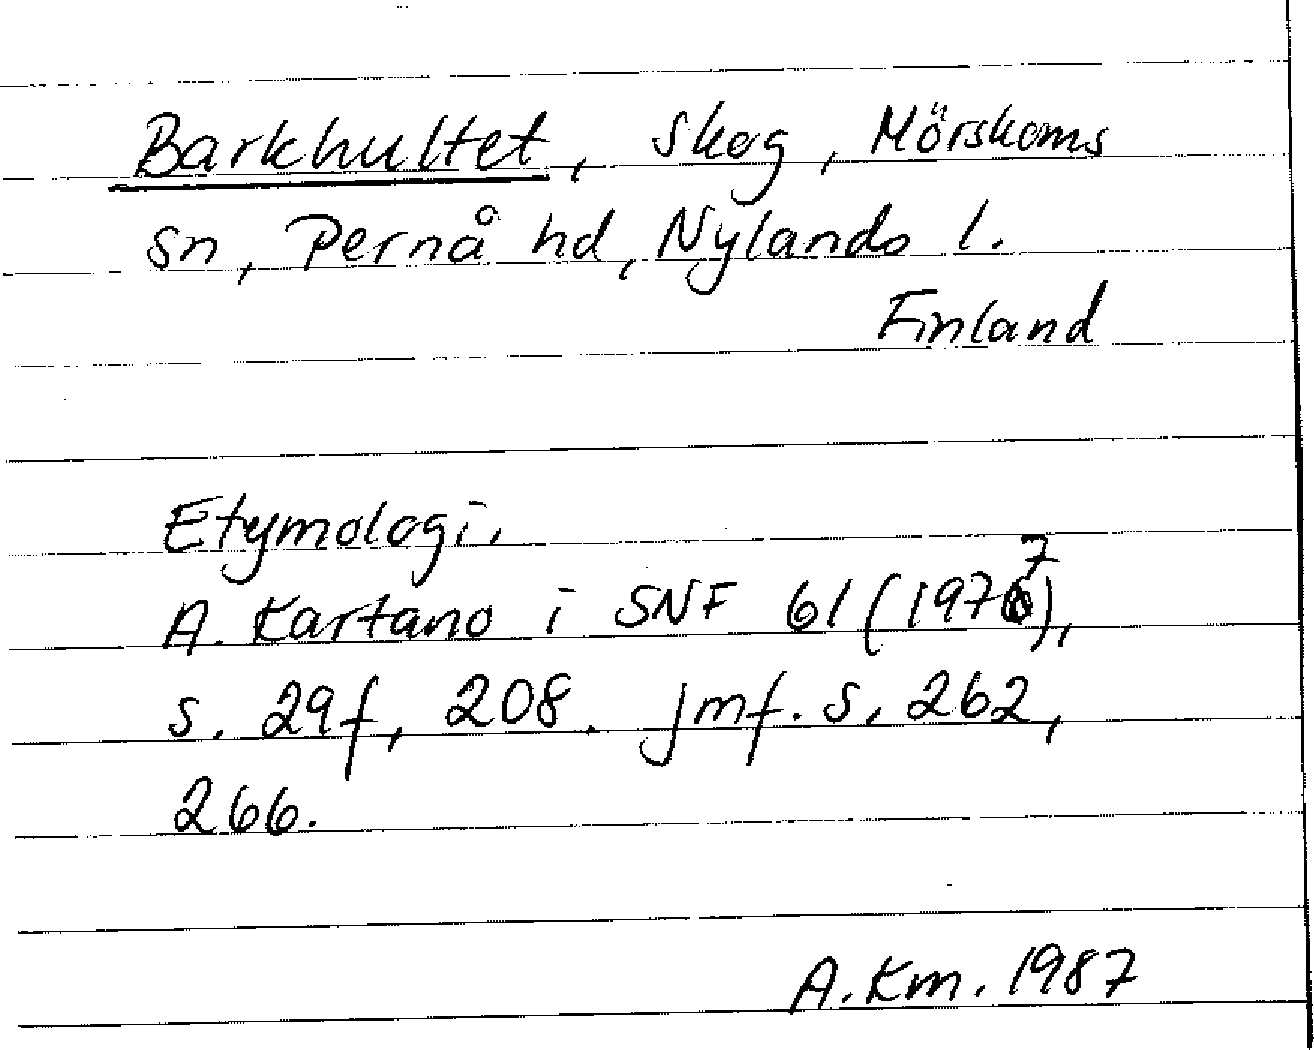 Barkhultet, skog, Mörskoms
sn, Pernå hd, Nylands l.
Finland
Etymologi.
A. Kartano i SNF 61 (1977),
s. 29f, 208. jmf. s. 262,
266.
A.Km. 1987